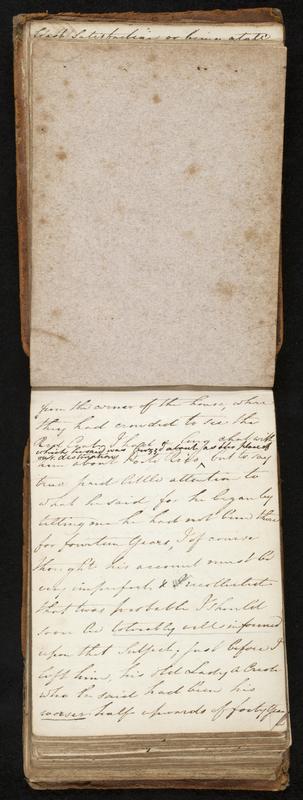 from the corner of the house, where
they had crowded to see the
Red Coats, I had a long chat with
which he said was
our destination
him about Porto Rico, but to say
true paid little attention to
what he said for he began by
telling me he had not been there
for fourteen Years, I of course
thought his account must be
very imperfect, &
that twas probable I should
soon be tolerably well informed
upon that subject, just before I
left him, his old Lady a Creole
who he said had been his
worser half upwards of forty Years